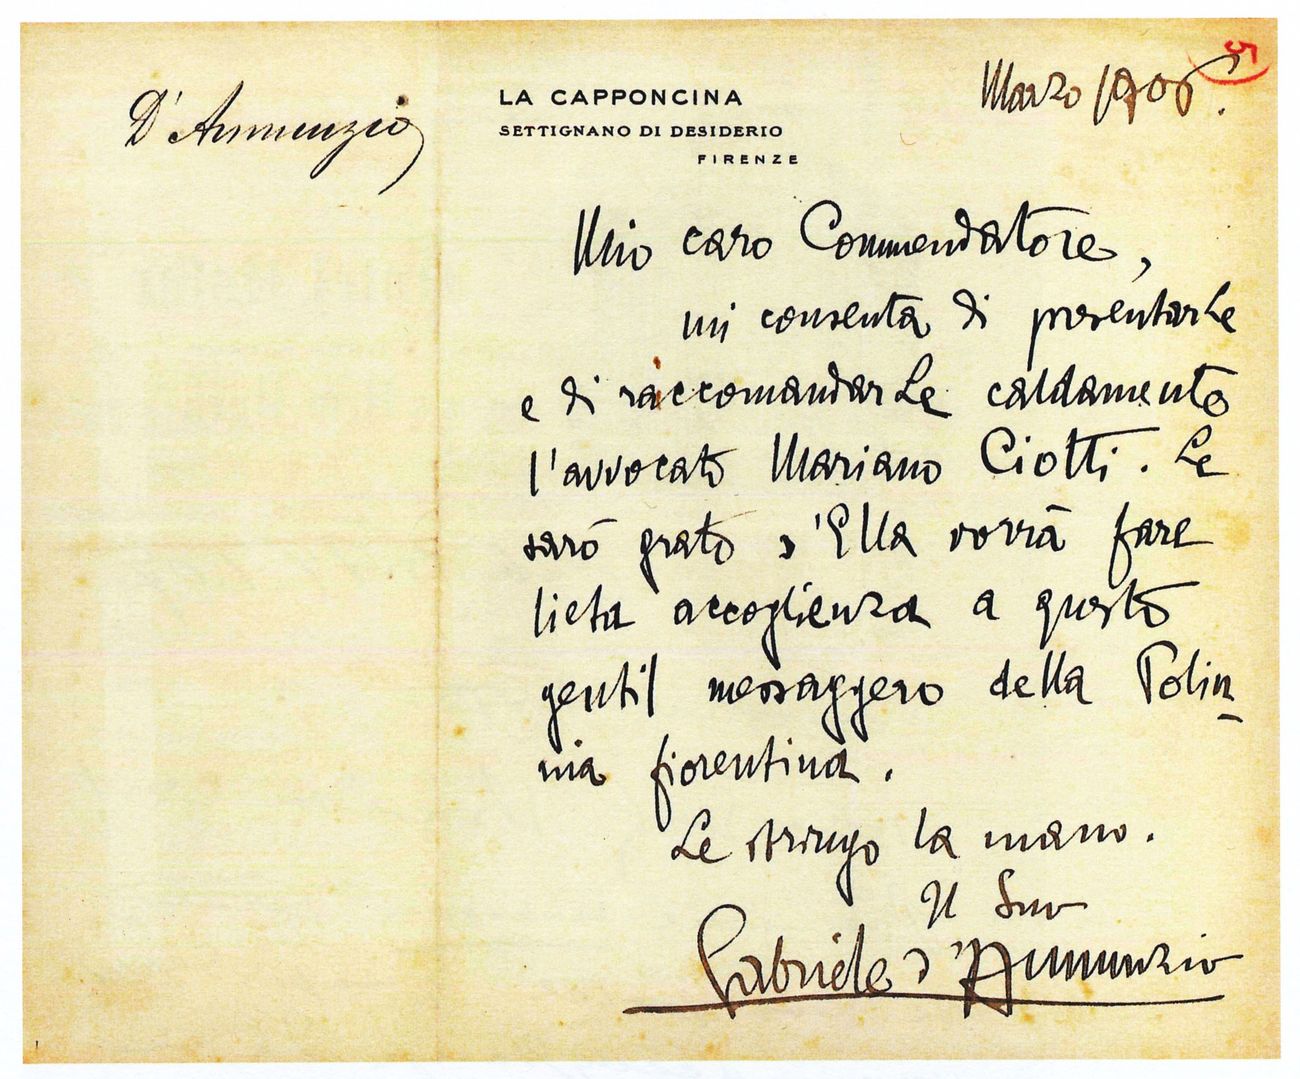 D'Annunzio
LA CAPPONCINA
SETTIGNANO DI DESIDERIO
FIRENZE
Marzo 1906.
5
Mio caro Commendatore,
mi consenta di presentarLe
e di raccomandarLe caldamente
l'avvocato Mariano Ciotti. Le
sarò grato s'Ella vorrà fare
lieta accoglienza a questo
gentil messaggero della Polin
nia fiorentina.
Le stringo la mano.
Il Suo
Gabriele d'Annunzio